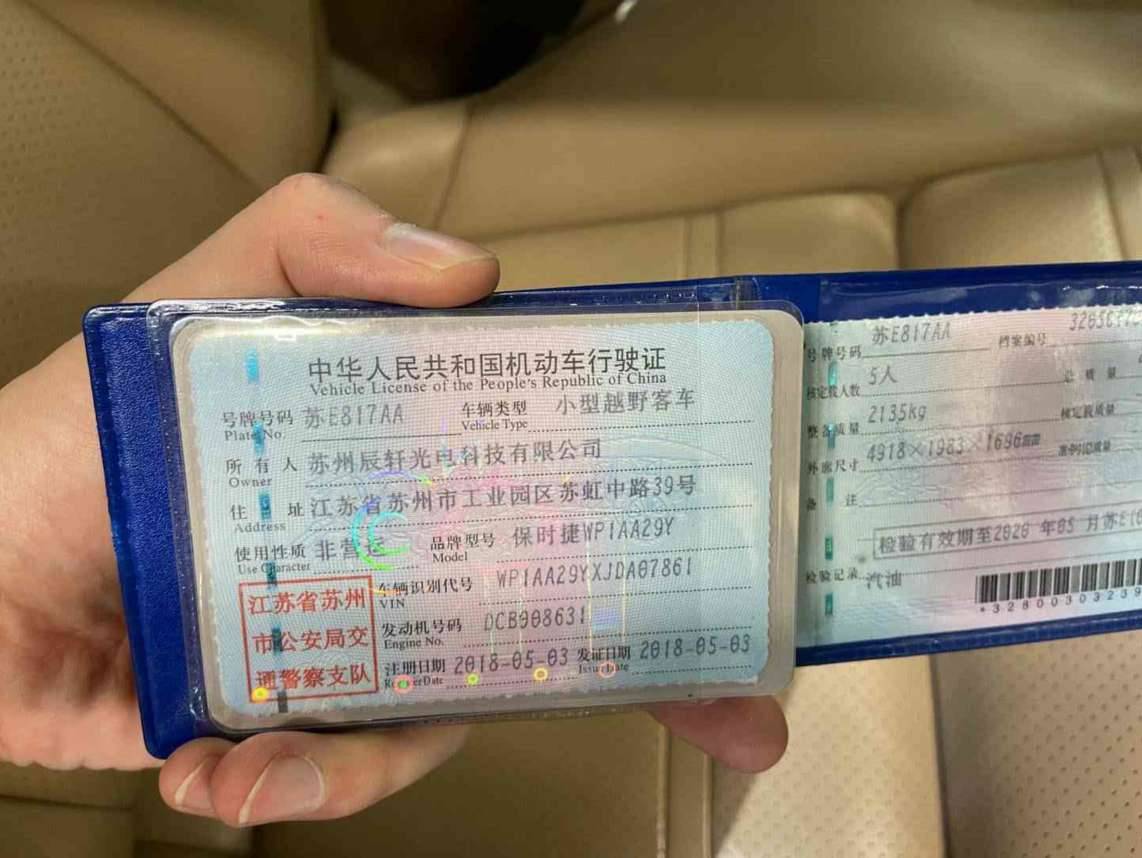 中华人民共和国机动车行驶证
Vehicle License of the People's Republic of China
号牌号码 苏E817AA 车辆类型 小型越野客车
Plate No. Vehicle Type
所有人 苏州辰轩光电科技有限公司
Owner
住址 江苏省苏州市工业园区苏虹中路39号
Address
使用性质 非营运 品牌型号 保时捷WP1AA29Y
Use Character Model
车辆识别代号 WP1AA29YXJDA07861
VIN
发动机号码 DCB008631
Engine No.
注册日期 2018-05-03 发证日期 2018-05-03
Register Date Issue Date
江苏省苏州
市公安局交
通警察支队
号牌号码 苏E817AA 档案编号
核定载人数 5人 总质量
整备质量 2135kg 核定载质量
外廓尺寸 4918×1983×1696mm
备注
检验有效期至2020年05月苏E
检验记录 汽油